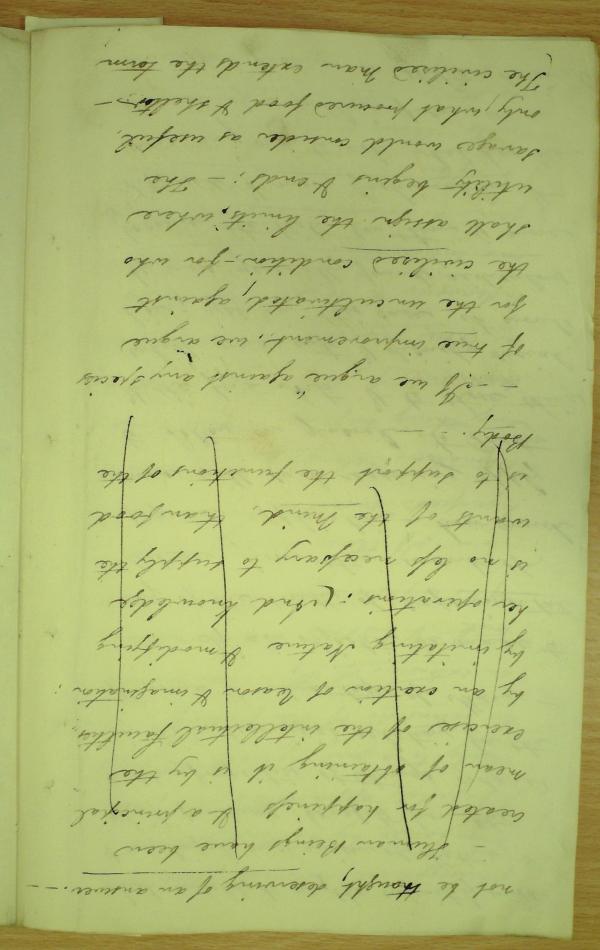 not be thought, deserving of an answer. —
— Human Beings have been
created for happiness & a principal
mean of obtaining it is by the
exercise of the intellectual faculties,
by an exertion of reason & imagination
by imitating Nature & modifying
her operations: (And knowledge
is no less necessary to supply the
wants of the mind, than food
is to support the functions of the
Body. —
— If we argue against any species
of true improvement, we argue
for the uncultivated, against
the civilised condition, for who
shall assign the limits, where
utility begins & ends; — The
savages would consider as useful,
only, what procured food & shelter —
The civilised Man extends the term